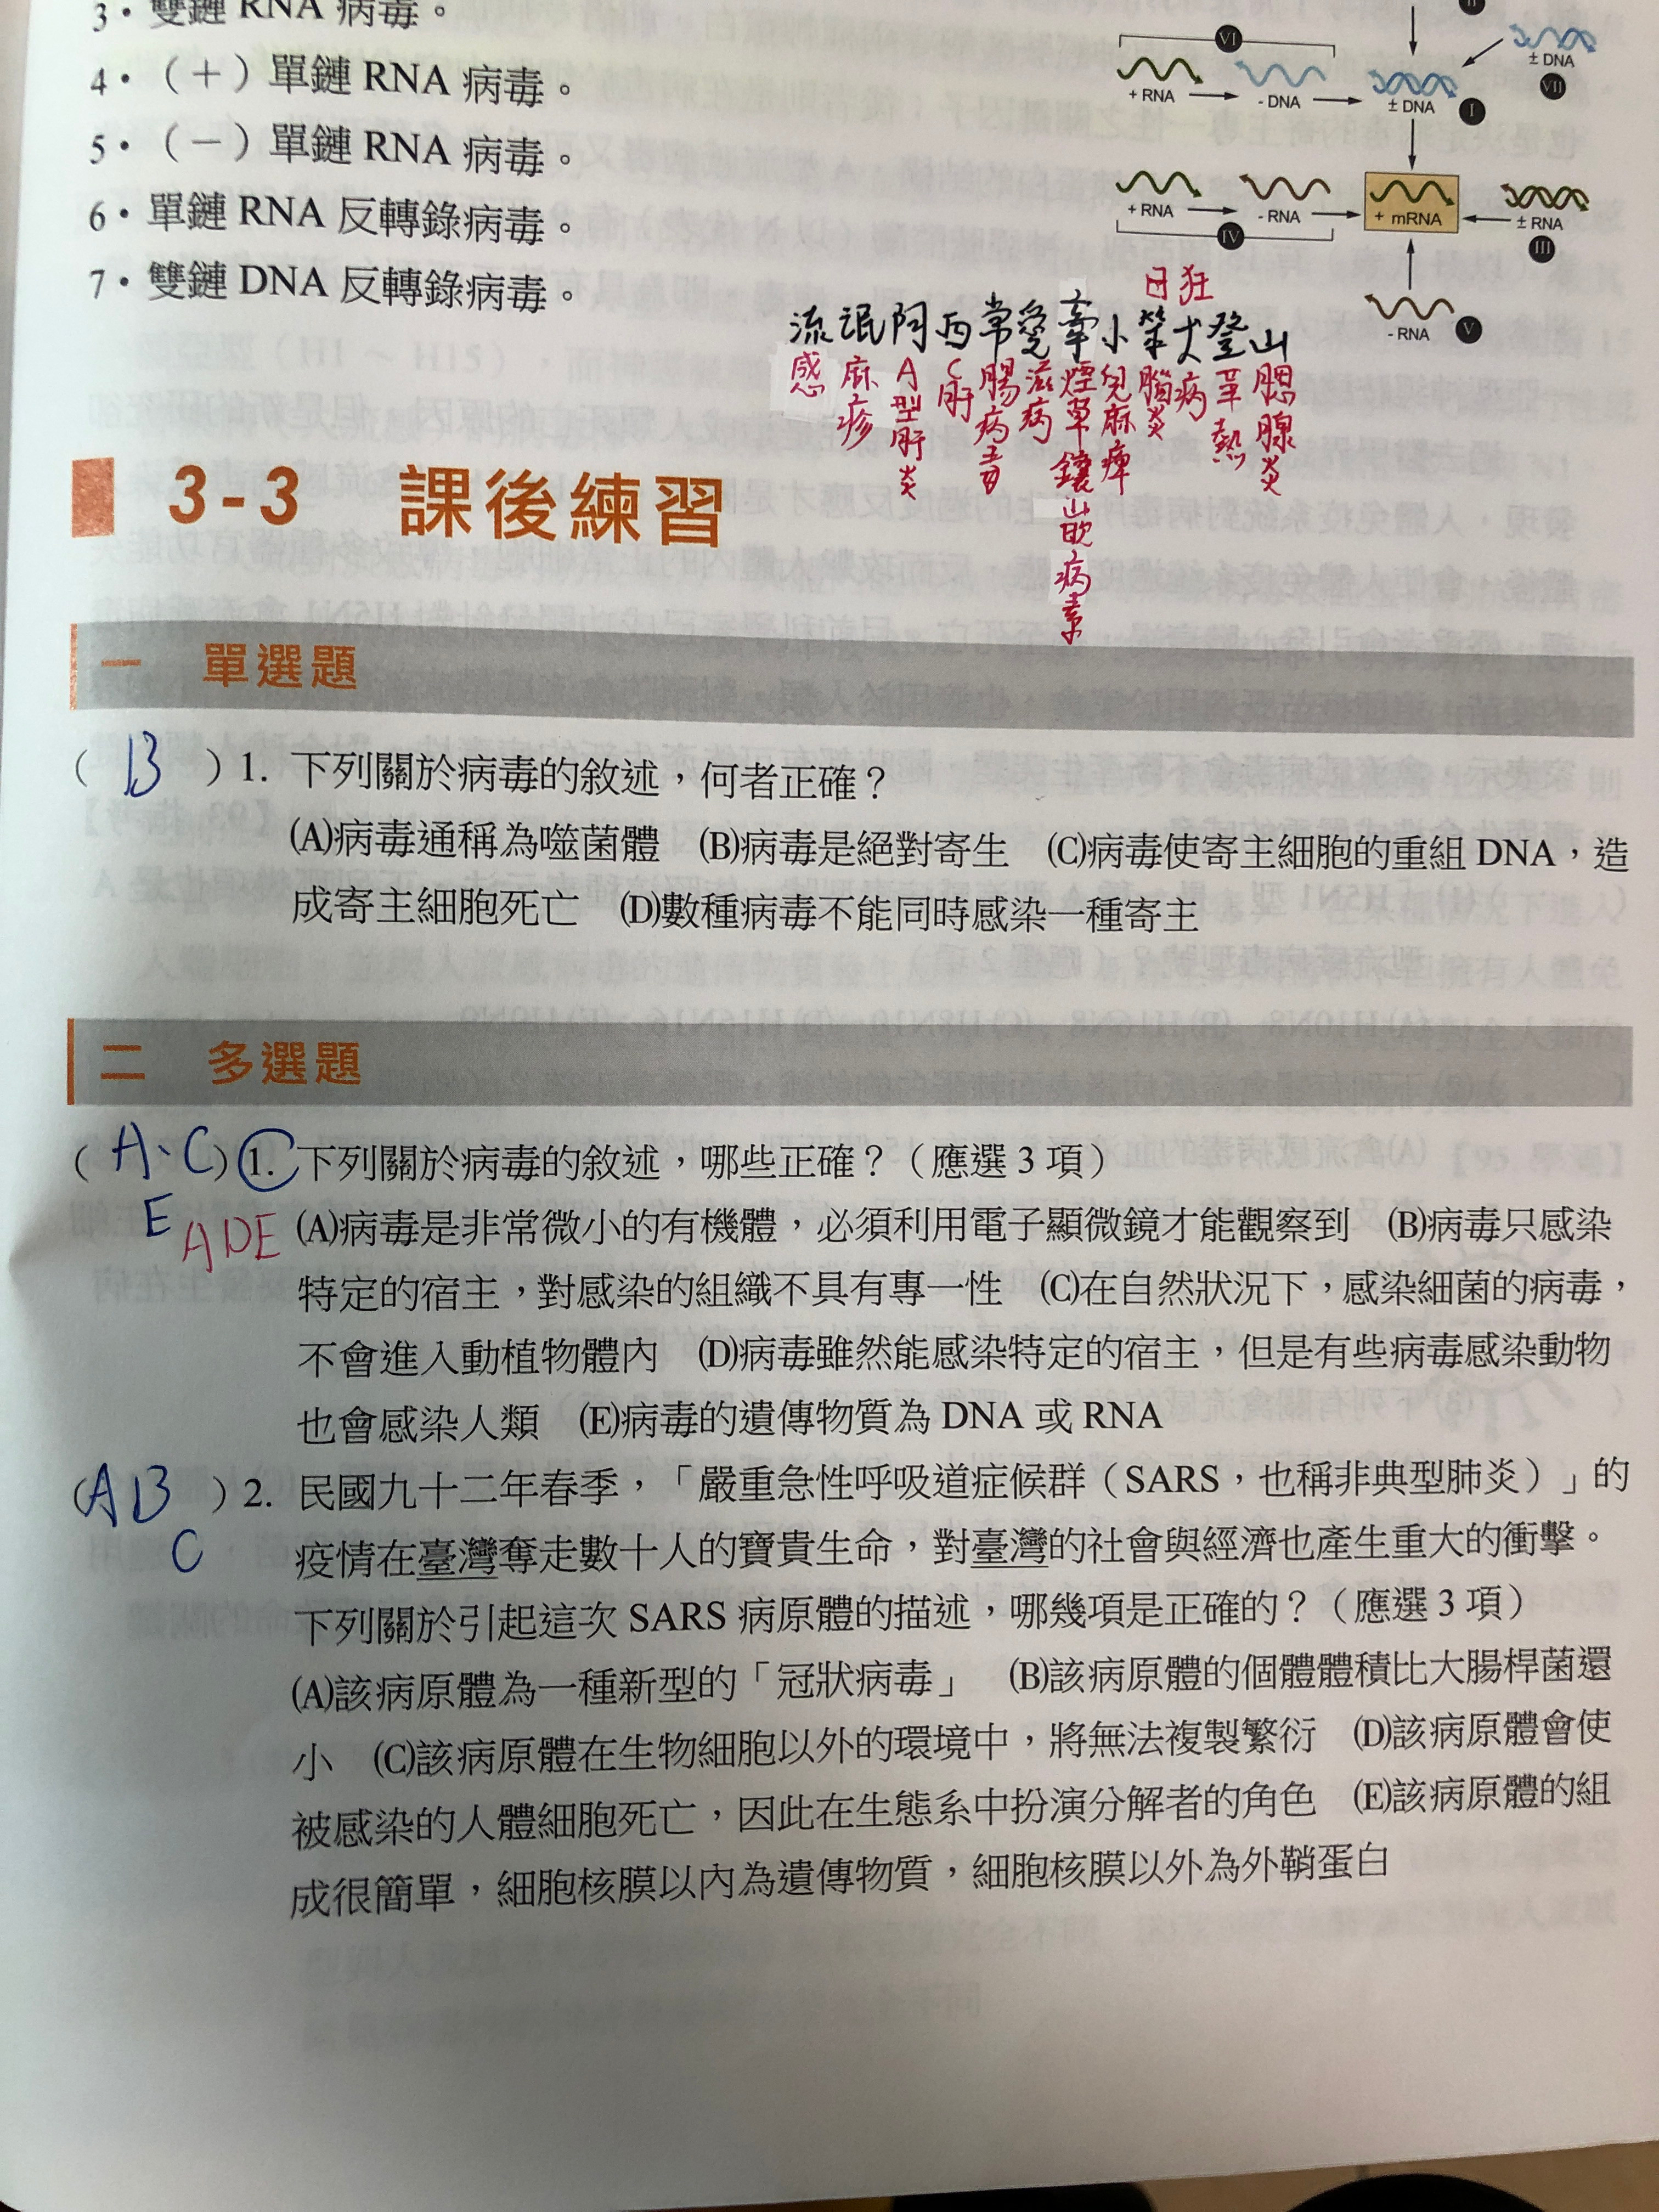 3．雙鏈 RNA 病毒。
4．（＋）單鏈 RNA 病毒。
5．（－）單鏈 RNA 病毒。
6．單鏈 RNA 反轉錄病毒。
7．雙鏈 DNA 反轉錄病毒。
II
VI
± DNA
VII
+ RNA
- DNA
± DNA
I
+ RNA
- RNA
+ mRNA
± RNA
IV
III
- RNA
V
日狂
流氓阿西常愛牽小榮犬登山
感
麻疹
A型肝炎
C肝
腸病毒
滋病
煙草鑲嵌病毒
兒麻痺
腦炎
病
革熱
腮腺炎
3-3 課後練習
一 單選題
（ B ）1. 下列關於病毒的敘述，何者正確？
(A)病毒通稱為噬菌體 (B)病毒是絕對寄生 (C)病毒使寄主細胞的重組 DNA，造
成寄主細胞死亡 (D)數種病毒不能同時感染一種寄主
二 多選題
（ A、C ）1. 下列關於病毒的敘述，哪些正確？（應選 3 項）
E ADE (A)病毒是非常微小的有機體，必須利用電子顯微鏡才能觀察到 (B)病毒只感染
特定的宿主，對感染的組織不具有專一性 (C)在自然狀況下，感染細菌的病毒，
不會進入動植物體內 (D)病毒雖然能感染特定的宿主，但是有些病毒感染動物
也會感染人類 (E)病毒的遺傳物質為 DNA 或 RNA
（ AB ）2. 民國九十二年春季，「嚴重急性呼吸道症候群（SARS，也稱非典型肺炎）」的
C 疫情在臺灣奪走數十人的寶貴生命，對臺灣的社會與經濟也產生重大的衝擊。
下列關於引起這次 SARS 病原體的描述，哪幾項是正確的？（應選 3 項）
(A)該病原體為一種新型的「冠狀病毒」 (B)該病原體的個體體積比大腸桿菌還
小 (C)該病原體在生物細胞以外的環境中，將無法複製繁衍 (D)該病原體會使
被感染的人體細胞死亡，因此在生態系中扮演分解者的角色 (E)該病原體的組
成很簡單，細胞核膜以內為遺傳物質，細胞核膜以外為外鞘蛋白